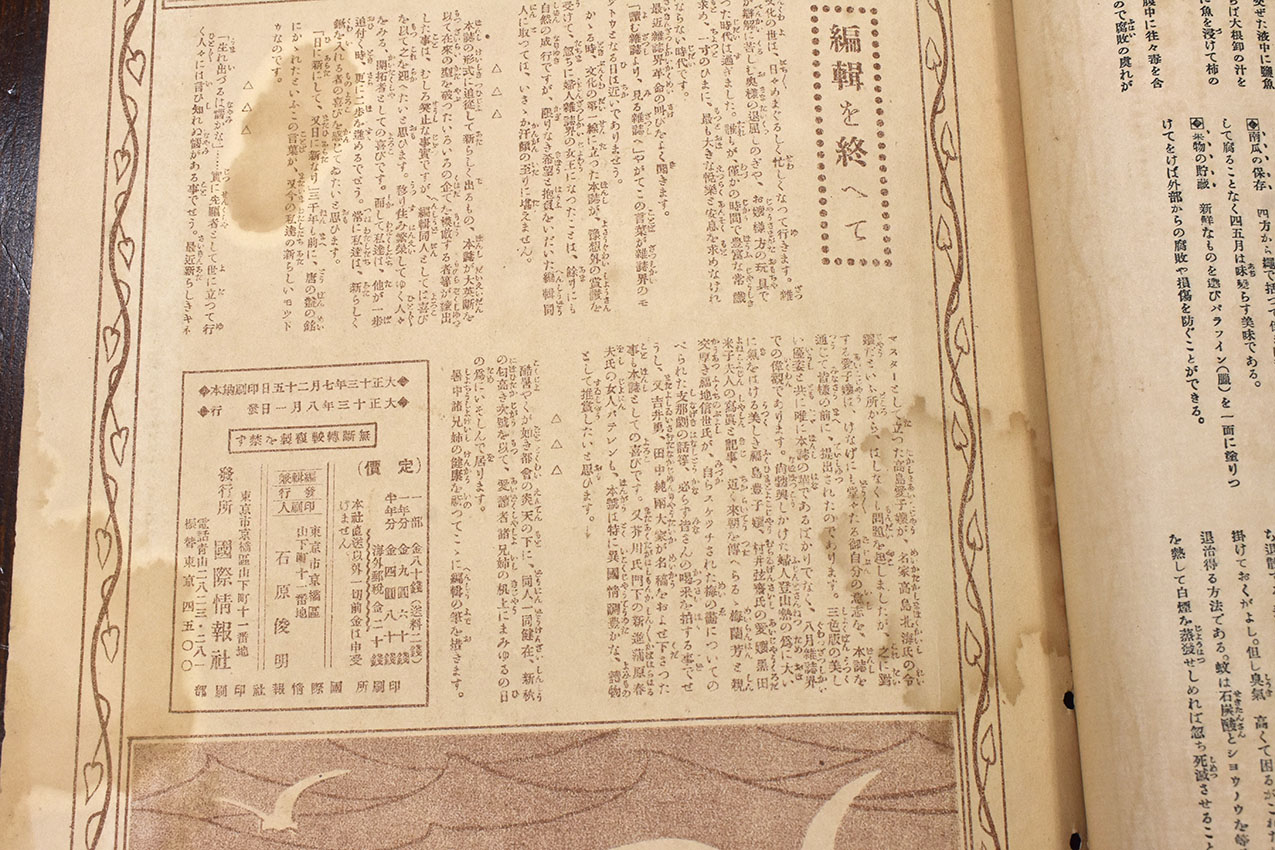 編輯を終へて
文化の世は、日一日めまぐるしく忙しくなつて行きます。雑
誌が難解に苦しむ奥様の退屈しのぎや、お嬢様方の玩具で
あつた時代は過ぎました。誰もが、僅かの時間で豊富な常識
を求め、一寸のひまに、最も大きな悦楽と安息を求めなけれ
ばならない時代です。
最近雑誌界革命の叫びをよく聞きます。
「讀む雑誌より、見る雑誌へ」やがてこの言葉が雑誌界のモ
ットウとなる日は近いでありませう。
かゝる時、文化の第一線に立つた本誌が、豫想外の賞讃を
受けて、忽ちに婦人雑誌界の女王になつたことは、餘りにも
自然の成行ですが、限りなき希望と抱負をいだいた編輯同
人に取つては、いさゝか汗顔の至りに堪えません。
△ △ △
本誌の形式に追從して新らしく出るもの、本誌が大英斷を
以て在來の殻を破つたいろいろの企てに
した事は、むしろ笑止な事實ですが、編輯同人としては喜び
を以て之を迎へたいと思ひます。移り住み繁榮してゆく人々
をみる、開拓者としての喜びです。而して私達は、他が一歩
追付く時、更に二歩を進めるでせう。常に私達は、新らしく
鍬を入れる者の喜びを感じてゐたいと思ひます。
「日に新にして、又日に新なり」三千年も前に、唐の盤の銘
にかゝれたといふこの言葉が、又今の私達の新らしいモット
ウなのです。
△ △ △
「生れ出づるは惱かな」……實に先驅者として世に立つて行
く人々には言ひ知れぬ惱がある事でせう。最近新らしきキネ
マスターとして立つた高島愛子孃が、名家高島北海氏の令
孃だといふ所から、はしなくも問題を起しましたが、之に對
する愛子孃は、けなげにも堂々たる御自分の意志を、本誌を
通じて皆樣の前に、提出されたのであります。三色版の美し
い優姿と共に唯に本誌の華であるばかりでなく、八月雑誌界
での偉觀であります。尚勃興しかけた婦人登山熱の爲に大い
に氣をはける美しき福島豊子孃、村井弦齋氏の愛孃黒田
米子夫人の寫眞と記事、近く來朝を傳へらるゝ梅蘭芳と親
交厚き福地信世氏が、自らスケッチされた梅の靄についての
べられた支那劇の話等、必らず皆さんの喝采を拍する事でせ
うし、又吉井勇、田中純兩大家が名稿をおよせ下さつた
事も本誌としての喜びです。又芥川氏門下の新進蒲原春
夫氏の女人バテレンも、本號は特に異國情調豊かな、讀物
として推奨したいと思ひます。
△ △ △
酷暑やくが如き都會の炎天の下に、同人一同健在、新秋
の匂高き次號を以て、愛讀者諸兄姉の机上にまみゆるの日
の爲にいそしんで居ります。
暑中諸兄姉の健康を祈つてこゝに編輯の筆を擱きます。
大正十三年七月二十五日印刷納本
大正十三年八月一日發行
無斷轉載複製を禁ず
定價
一部 金八十錢(送料二錢)
半年分 金四圓六十錢
一年分 金九圓
海外郵税金二十錢
本社直送以外一切前金は申受
けません
編輯兼
發行
印刷人
東京市京橋區
山下町十一番地
石原俊明
東京市京橋區山下町十一番地
發行所 國際情報社
電話青山二八一三・二八一
振替東京四五〇〇
印刷所 國際情報社印刷部
突ぜた液中に鹽魚
ちば大根卸の汁を
に魚を浸けて柿の
腹中に往々毒を含
ので腐敗の虞れが
◆南瓜の保存 四方から繩で括つて
して腐ることなく四五月は味變らす美味である。
◆果物の貯蔵 新鮮なものを選びパラフイン(臘)を一面に塗りつ
けてをけば外部からの腐敗や損傷を防ぐことができる。
掛けておくがよし。但し臭氣 高くて困るが
退治得る方法である。蚊は石炭酸とショウノウを等
を熱して白煙を蒸發せしめれば忽ち死滅させること